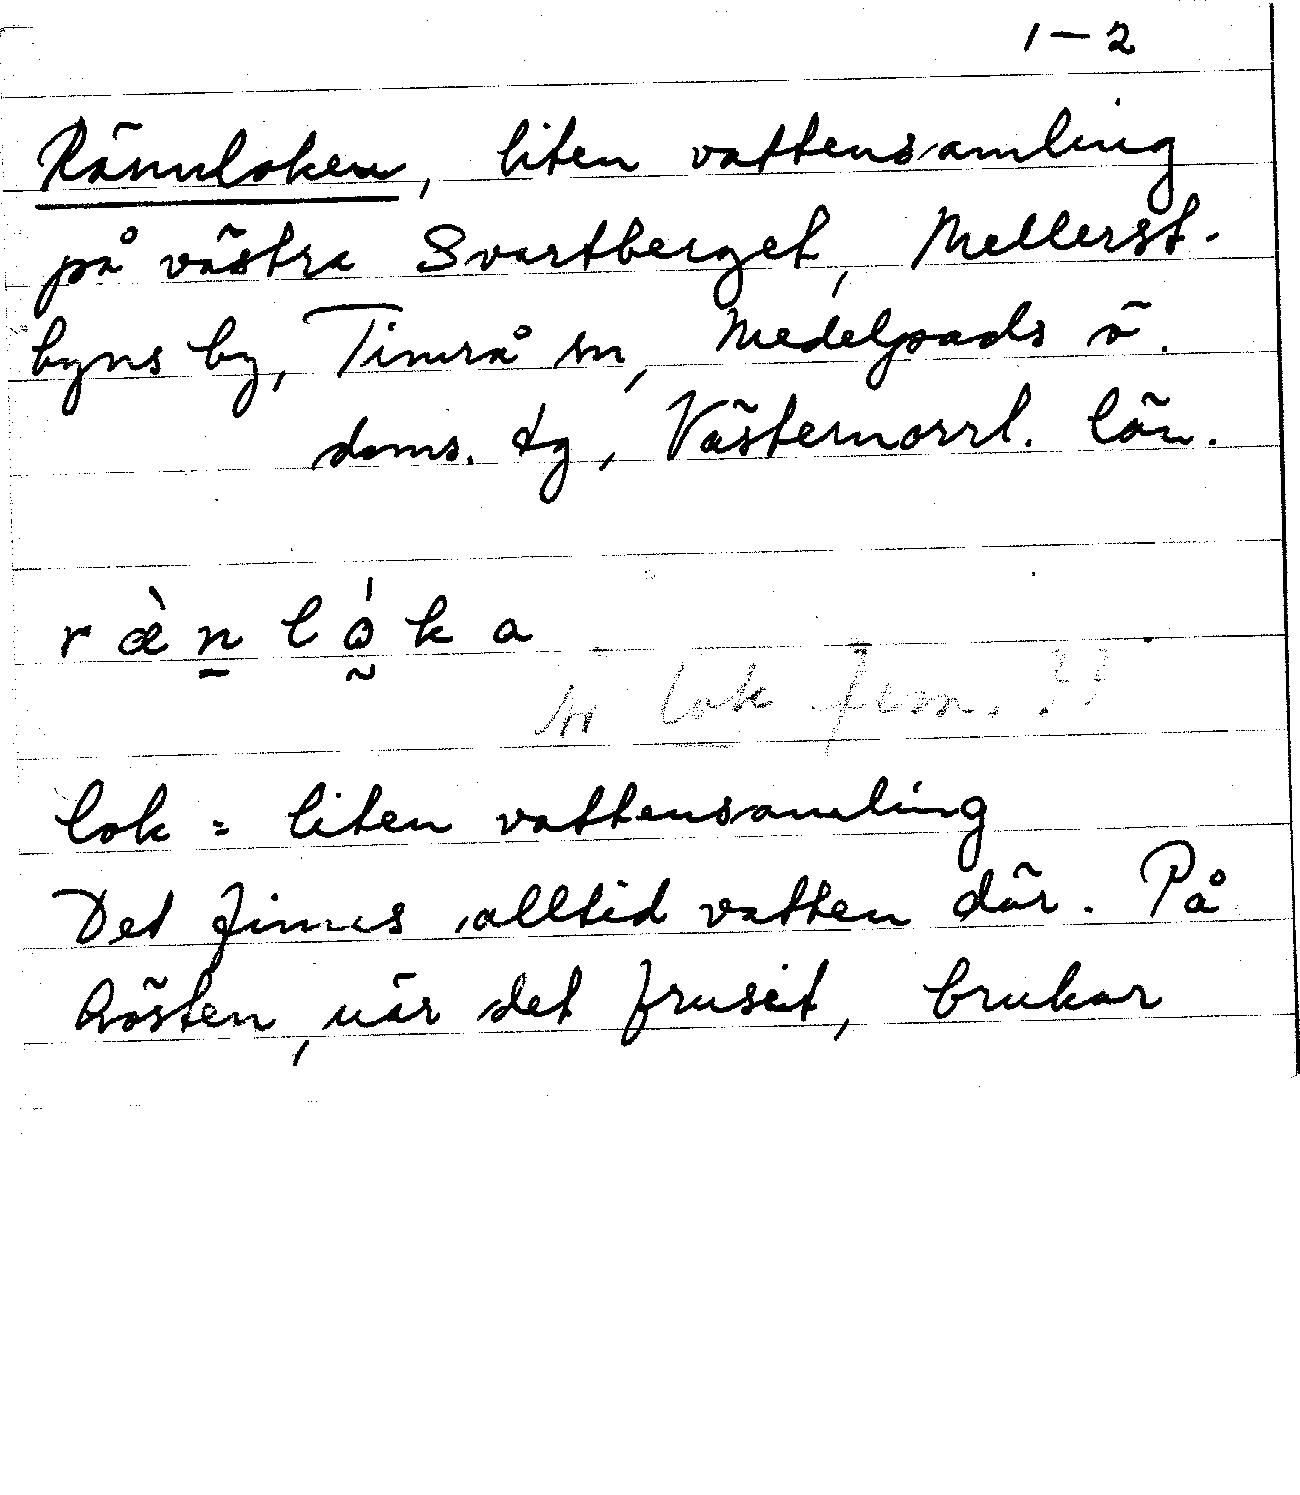 1–2
Rännloken, liten vattensamling
på västra Svartberget, Mellerst-
byns by, Timrå sn, Medelpads ö.
doms. tg, Västernorrl. län.
ræ̀n̲lǫ́ka
är lok fem. ??
lok = liten vattensamling
Det finnes alltid vatten där. På
hösten, när det frusit, brukar